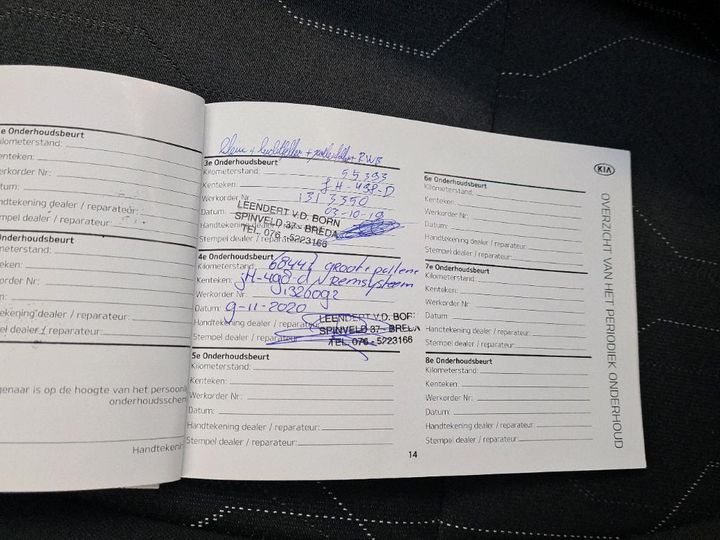 e Onderhoudsbeurt
ilometerstand:
enteken:
erkorder Nr.:
atum:
andtekening dealer / reparateur:
tempel dealer / reparateur:
Onderhoudsbeurt
lometerstand:
enteken:
erkorder Nr.:
tum:
ekening dealer / reparateur:
el dealer / reparateur:
genaar is op de hoogte van het persoonl
onderhoudsschem
Handtekenin
+ luchtfilter + pollenfilter RWB
3e Onderhoudsbeurt
Kilometerstand: 55393
Kenteken: JH-498-D
Werkorder Nr.: 1313390
Datum: 03-10-19
Handtekening dealer / reparateur:
Stempel dealer / reparateur:
LEENDERT V.D. BORN
SPINVELD 37 - BREDA
TEL. 076 - 5223166
4e Onderhoudsbeurt
Kilometerstand: 68447 groot + pollen
Kenteken: JH-498-d Remsysteem
Werkorder Nr.: 1326092
Datum: 9-11-2020
Handtekening dealer / reparateur:
Stempel dealer / reparateur:
LEENDERT V.D. BOR
SPINVELD 37 - BREDA
TEL. 076 - 5223166
5e Onderhoudsbeurt
Kilometerstand:
Kenteken:
Werkorder Nr.:
Datum:
Handtekening dealer / reparateur:
Stempel dealer / reparateur:
6e Onderhoudsbeurt
Kilometerstand:
Kenteken:
Werkorder Nr.:
Datum:
Handtekening dealer / reparateur:
Stempel dealer / reparateur:
7e Onderhoudsbeurt
Kilometerstand:
Kenteken:
Werkorder Nr.:
Datum:
Handtekening dealer / reparateur:
Stempel dealer / reparateur:
8e Onderhoudsbeurt
Kilometerstand:
Kenteken:
Werkorder Nr.:
Datum:
Handtekening dealer / reparateur:
Stempel dealer / reparateur:
KIA
OVERZICHT VAN HET PERIODIEK ONDERHOUD
14